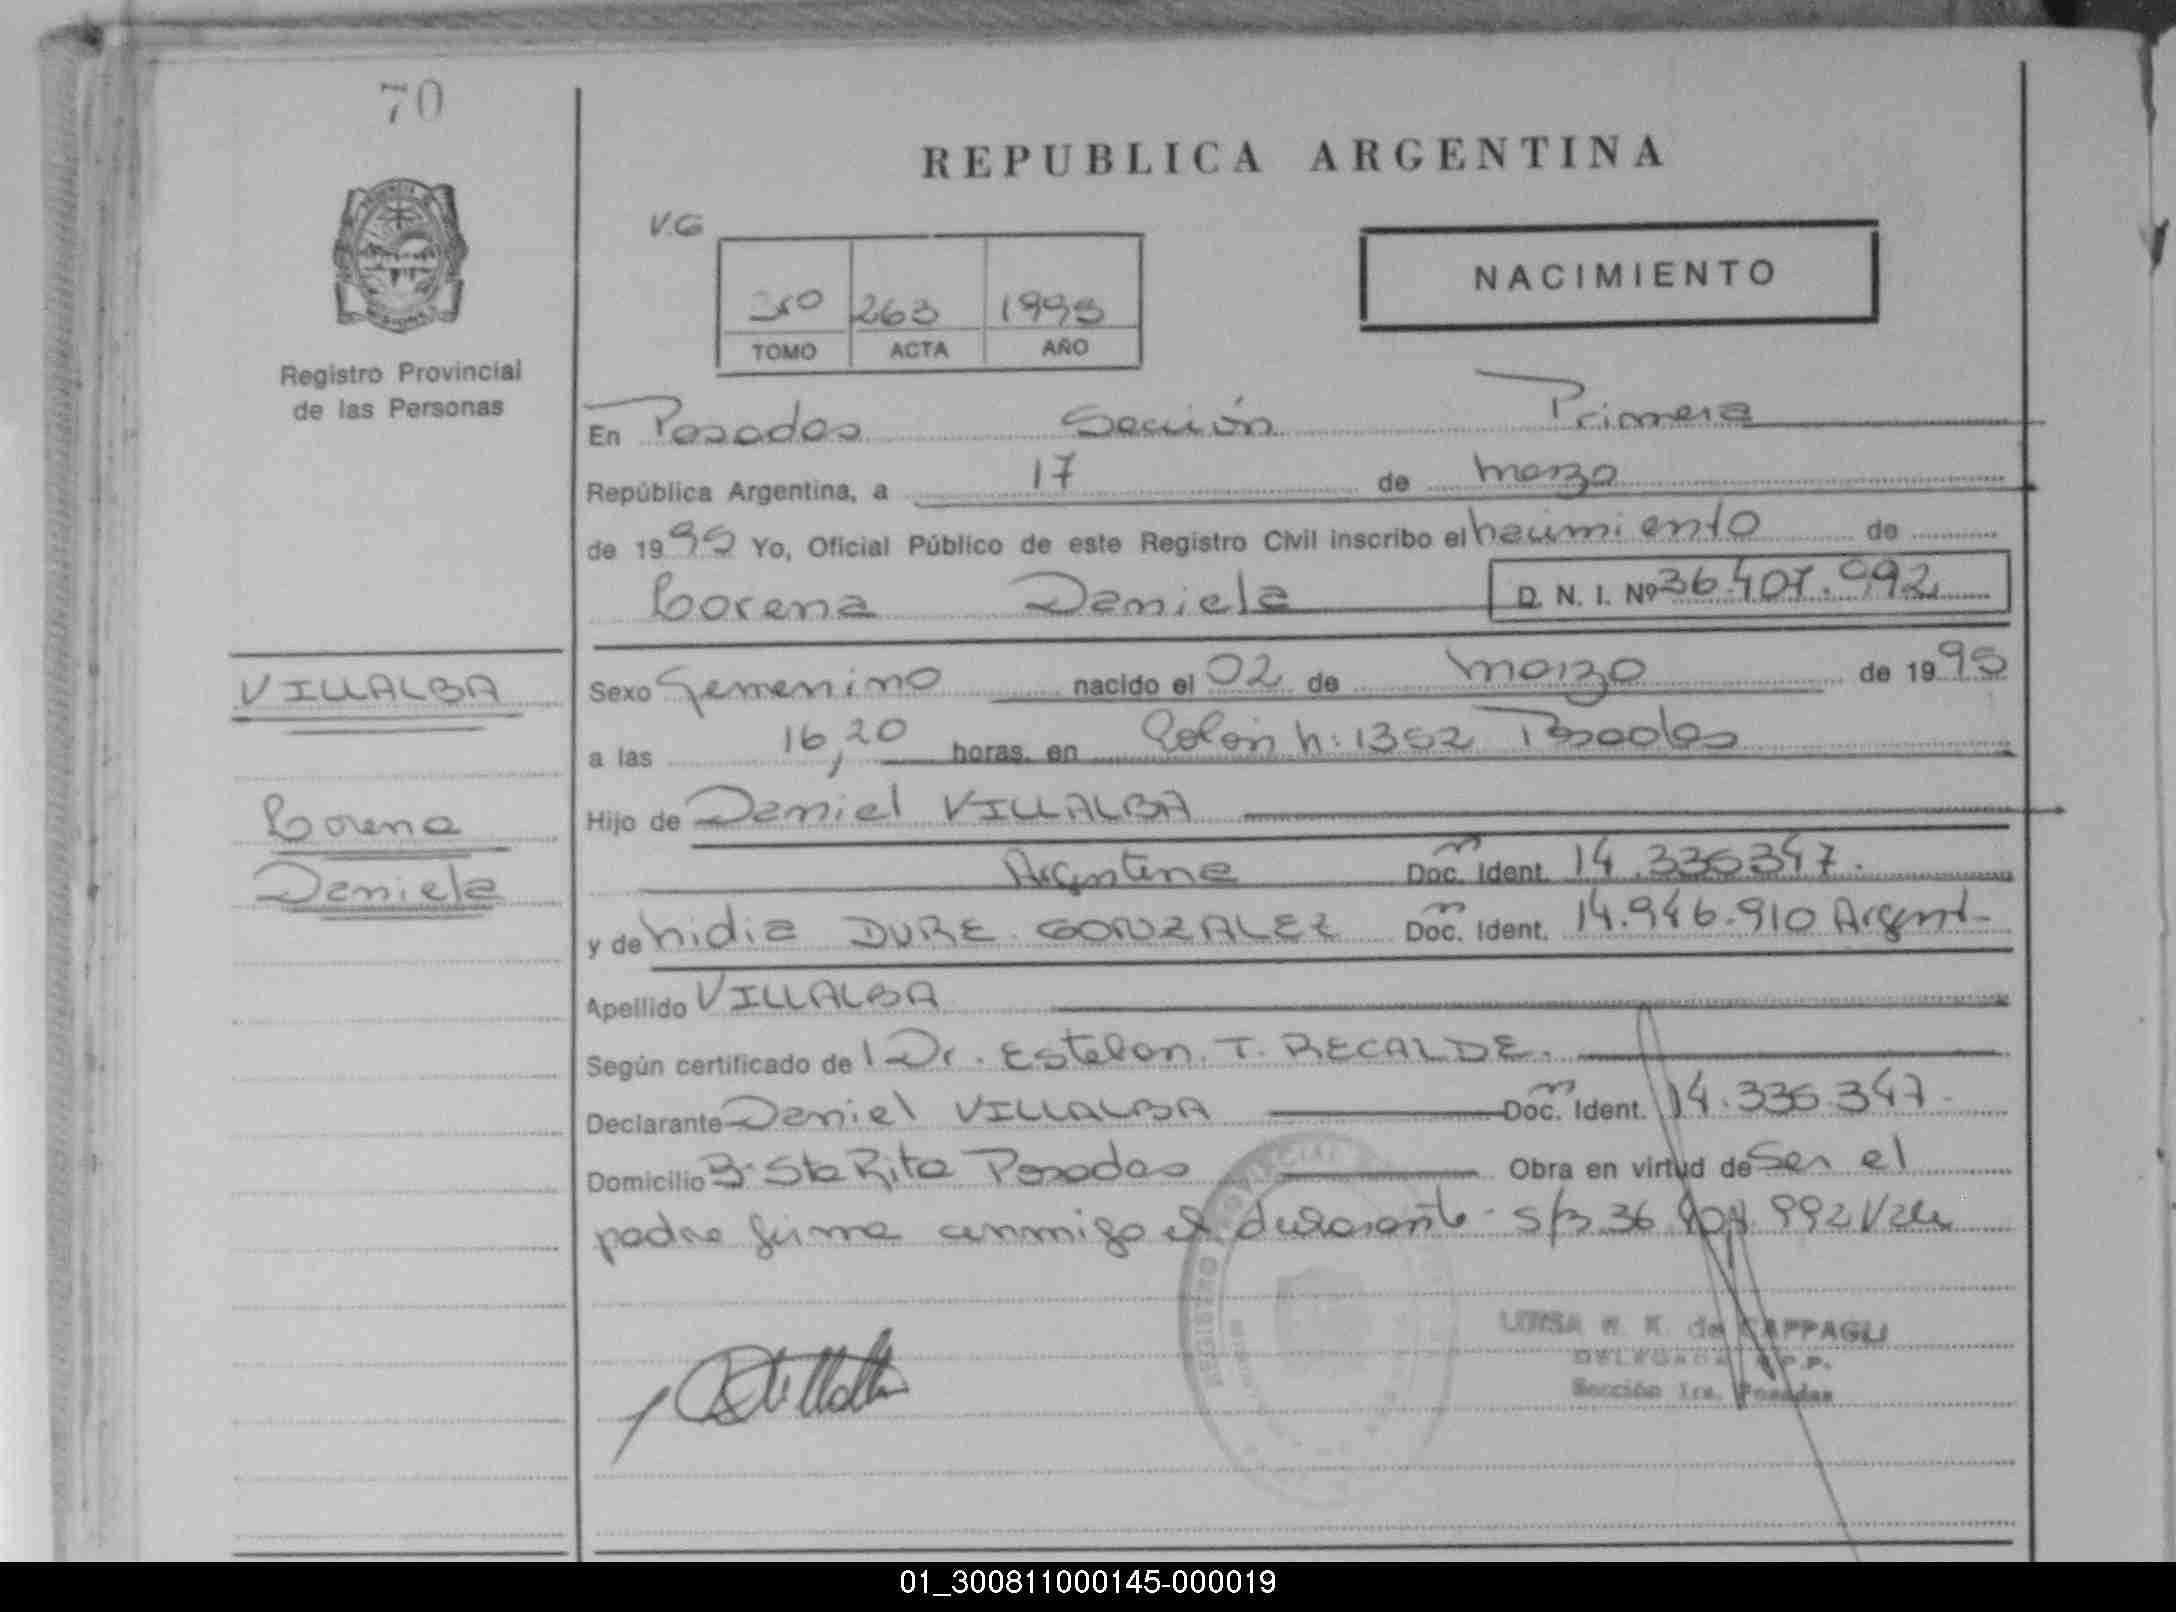 70
REPUBLICA ARGENTINA
V.G
NACIMIENTO
263 1995
TOMO ACTA AÑO
Registro Provincial
de las Personas
En Posadas Sección Primera
República Argentina, a 17 de marzo
de 1995 Yo, Oficial Público de este Registro Civil inscribo el nacimiento de
Lorena Daniela D. N. I. Nº 36.407.992
VILLALBA
Sexo Femenino nacido el 02 de marzo de 1995
a las 16,20 horas. en Colón N: 1352 Posadas
Lorena
Hijo de Daniel VILLALBA
Daniela
Argentina Doc. Ident. 14.336347.
y de Nidia DURE GONZALEZ Doc. Ident. 14.946.910 Argent-
Apellido VILLALBA
Según certificado de Dr. Esteban. T. RECALDE.
Declarante Daniel VILLALBA Doc. Ident. 14.336.347.
Domicilio Bº Sta Rita Posadas Obra en virtud de Ser el
padre firma conmigo el declarante- S/B 36 407 992 Vale
REGISTRO PROVINCIAL
LUISA W. K. de CAPPAGLI
DELEGADA R.P.P.
Sección 1ra. Posadas
01_300811000145-000019